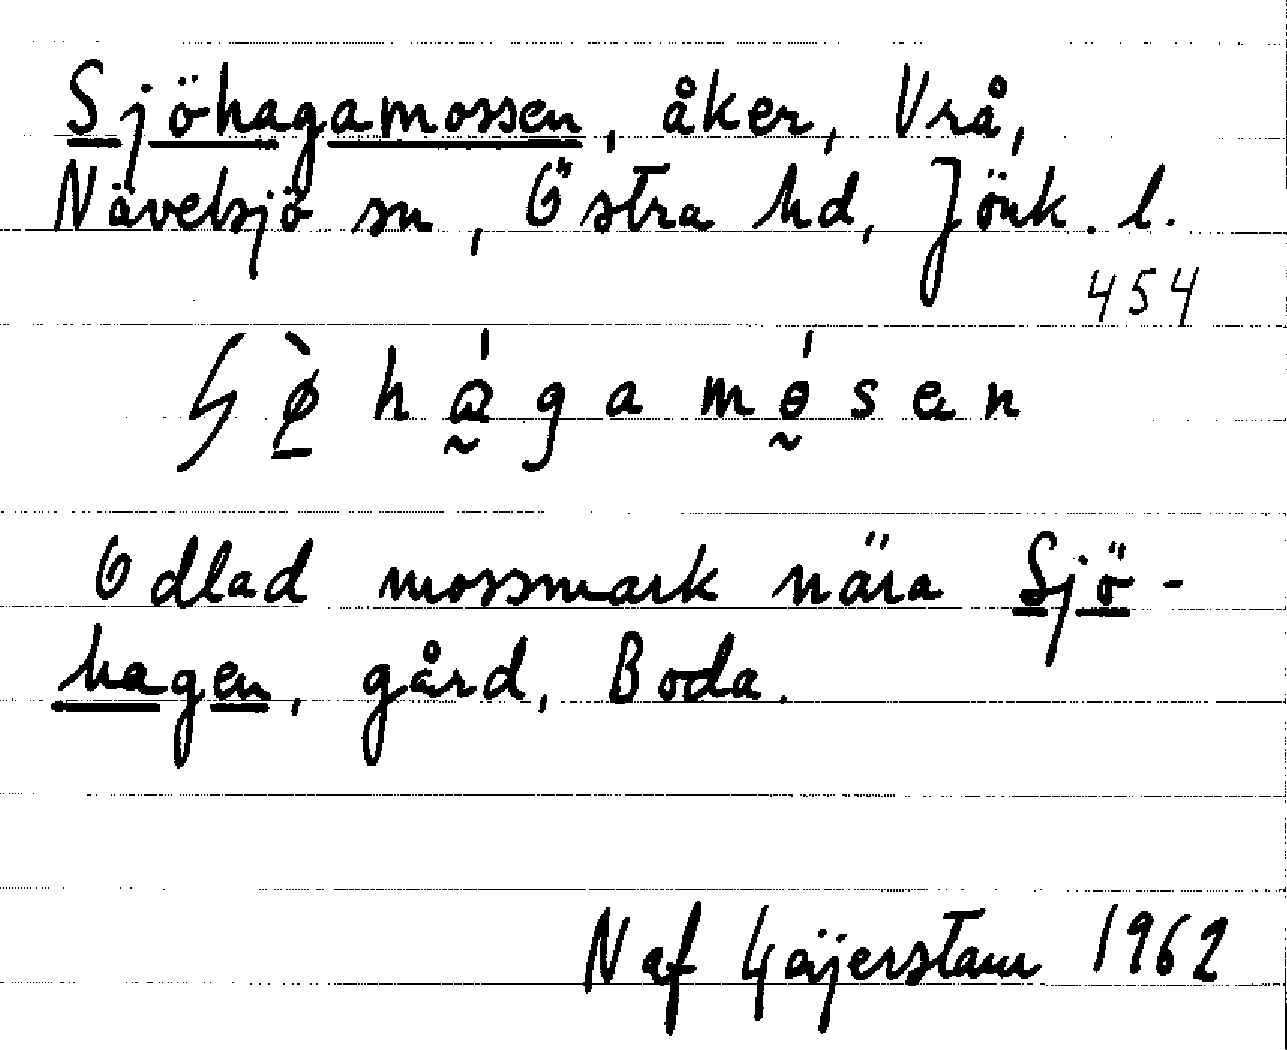 Sjöhagamossen, åker, Vrå,
Nävelsjö sn, Östra hd, Jönk. l.
454
hágamósen
Odlad mossmark nära Sjö-
hagen, gård, Boda.
N af Gäijerstam 1962